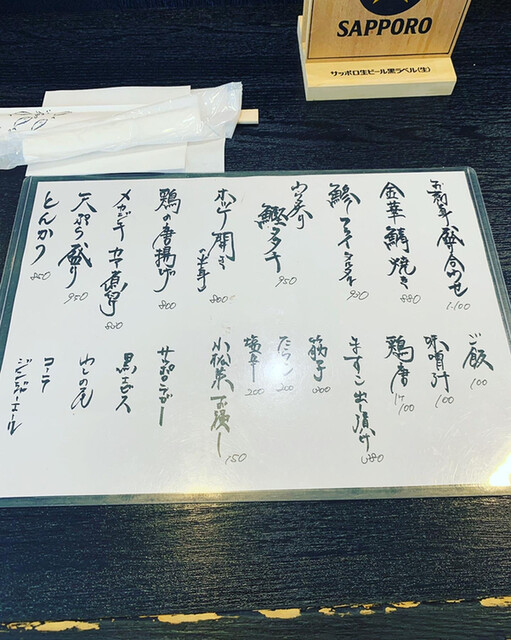 SAPPORO
サッポロ生ビール黒ラベル〈生〉
お刺身盛り合わせ
1.100
金華鯖焼き
880
鯵フライ
950
鰹タタキ
950
ホッケ開き
(半身)
800
鶏の唐揚げ
800
メカジキカマ煮
800
天ぷら盛り
950
とんかつ
850
ご飯
100
味噌汁
100
鶏唐
1ケ
100
ますこ出し漬け
筋子
300
たらこ
200
塩辛
200
小松菜お浸し
150
サッポロラガー
黒ラベル
コーラ
ジンジャーエール